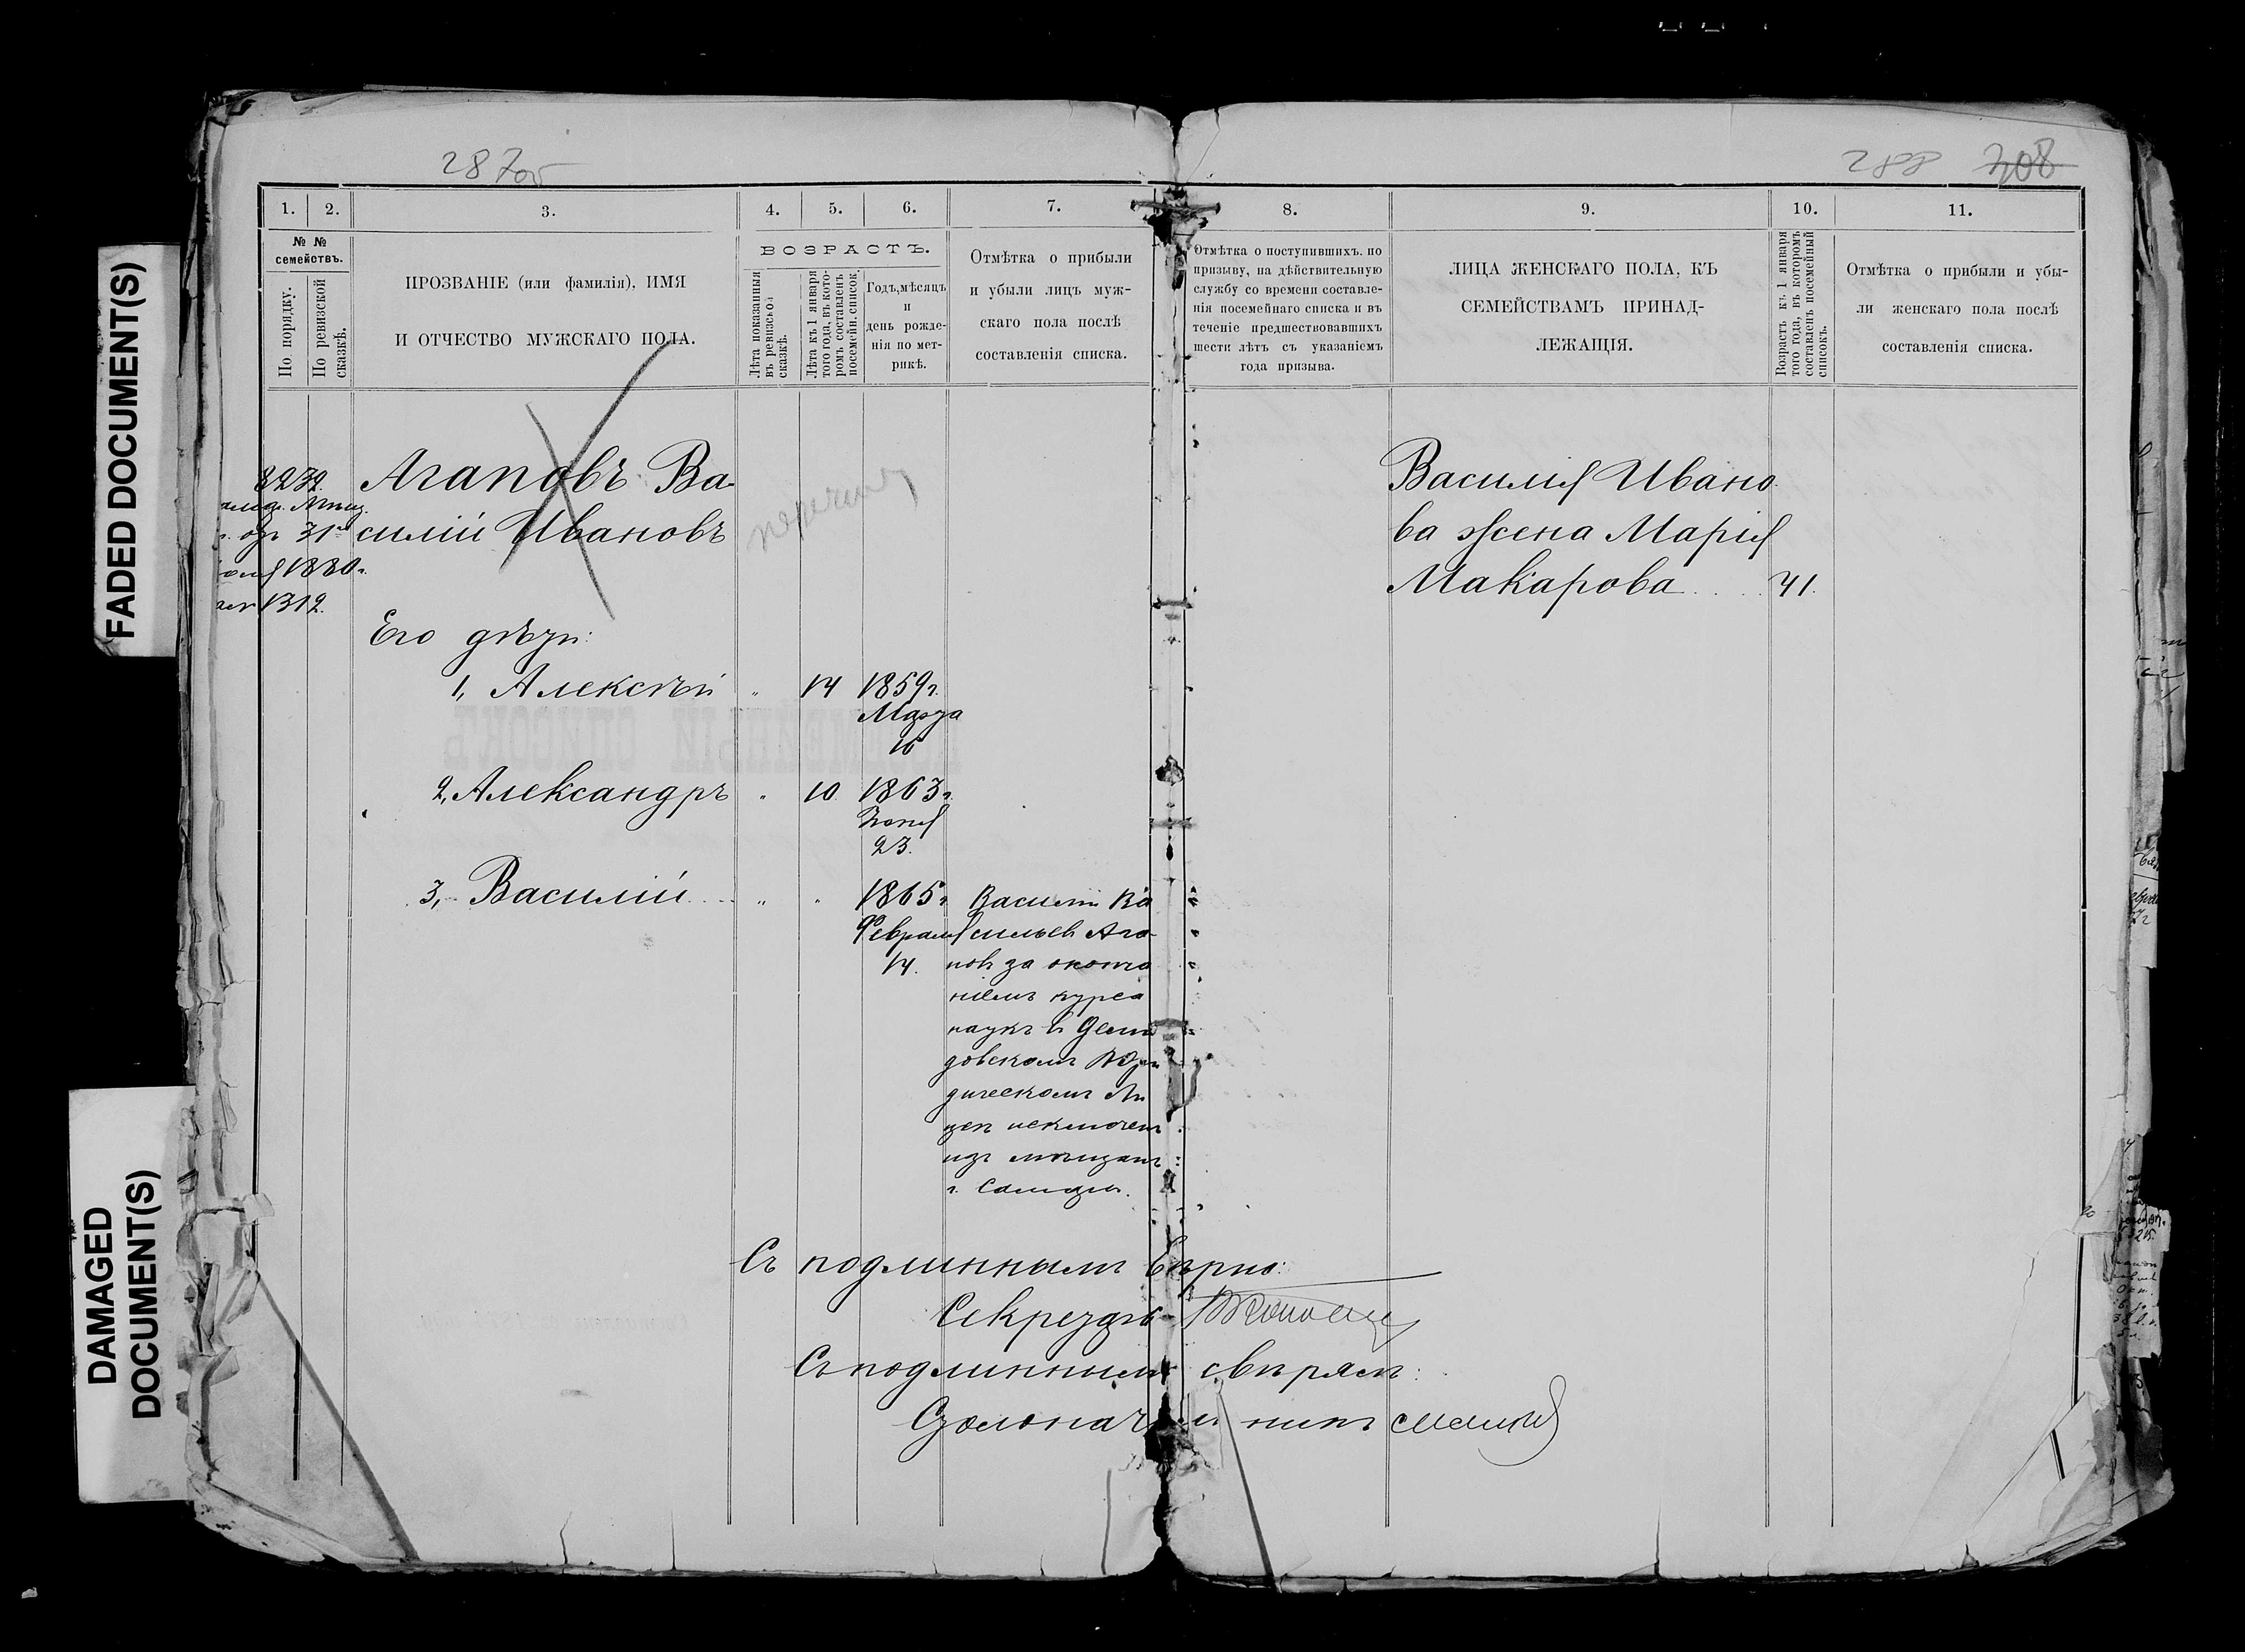 FADED DOCUMENT(S)
DAMAGED
DOCUMENT(S)
287об
288 308
1. 2. 3. 4. 5. 6. 7. 8. 9. 10. 11.
№ №
семействъ.
По порядку.
По ревизской
сказкѣ.
ПРОЗВАНІЕ (или фамилія), ИМЯ
И ОТЧЕСТВО МУЖСКАГО ПОЛА.
ВОЗРАСТЪ.
Лѣта показанныя
въ ревизской
сказкѣ.
Лѣта къ 1 января
того года, въ кото-
ромъ составленъ
посемейн. списокъ
Годъ, мѣсяцъ
и
день рожде-
нія по мет-
рикѣ.
Отмѣтка о прибыли
и убыли лицъ муж-
скаго пола послѣ
составленія списка.
Отмѣтка о поступившихъ. по
призыву, на дѣйствительную
службу со времени составле-
нія посемейнаго списка и въ
теченіе предшествовавшихъ
шести лѣтъ съ указаніемъ
года призыва.
ЛИЦА ЖЕНСКАГО ПОЛА, КЪ
СЕМЕЙСТВАМЪ ПРИНАД-
ЛЕЖАЩІЯ.
Возрастъ къ 1 января
того года, въ которомъ
составленъ посемейный
списокъ.
Отмѣтка о прибыли и убы-
ли женскаго пола послѣ
составленія списка.
3232.
31
1880г.
1312.
Агаповъ Ва-
силій Ивановъ
Его дѣти:
1, Алексѣй " 14 1859г.
Марта
16
2, Александръ " 10 1863г.
23.
3, Василій " " 1865г
Февраля
14.
Василій Ва
сильев Ага-
повъ за оконча
ніемъ курса
наукъ въ Деми
довскомъ Юри
дическомъ Ли
цеѣ исключенъ
изъ мѣщанъ
г. Самары.
Василія Ивано
ва жена Марія
Макарова.... 41.
Съ подлиннымъ вѣрно:
Секретарь
Съ подлиннымъ свѣрялъ:
Столоначальникъ